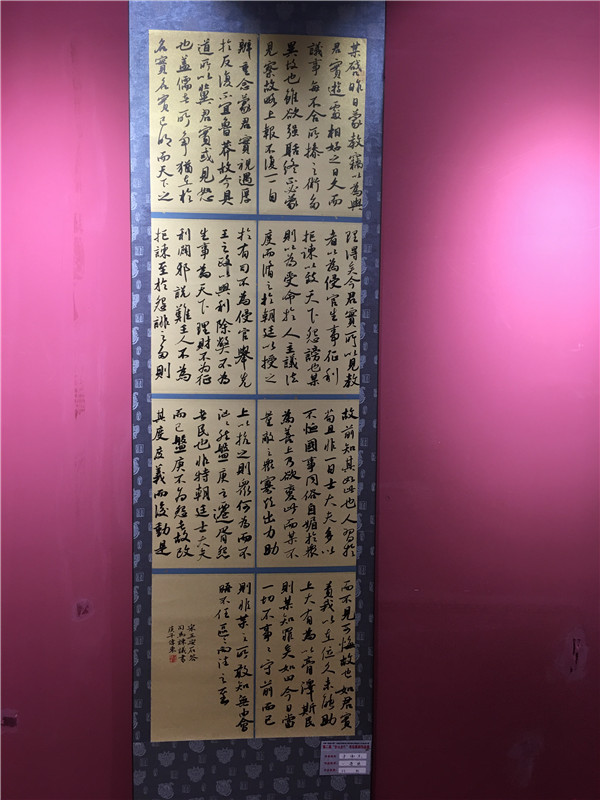 某啓昨日蒙教竊以為與
君實遊處相好之日久而
議事每不合所操之術多
異故也雖欲强聒終必不蒙
見察故略上報不復一一自
辨重念蒙君實視遇厚
於反復不宜魯莽故今具
道所以冀君實或見恕
也蓋儒者所爭猶在於
名實名實已明而天下之
理得矣今君實所以見教
者以為侵官生事征利
拒諫以致天下怨謗也某
則以為受命於人主議法
度而脩之於朝廷以授之
於有司不為侵官舉先
王之政以興利除弊不為
生事為天下理財不為征
利闢邪說難壬人不為
拒諫至於怨誹之多則
故前知其如此也人習於
苟且非一日士大夫多以
不恤國事同俗自媚於衆
為善上乃欲變此而某不
量敵之衆寡欲出力助
上以抗之則衆何為而不
洶洶然盤庚之遷胥怨
者民也非特朝廷士大夫
而已盤庚不為怨者故改
其度度義而後動是
而不見可悔故也如君實
責我以在位久未能助
上大有為以膏澤斯民
則某知罪矣如曰今日當
一切不事事守前而已
則非某之所敢知無由會
晤不任區區向往之至
宋王安石答
司馬諫議書